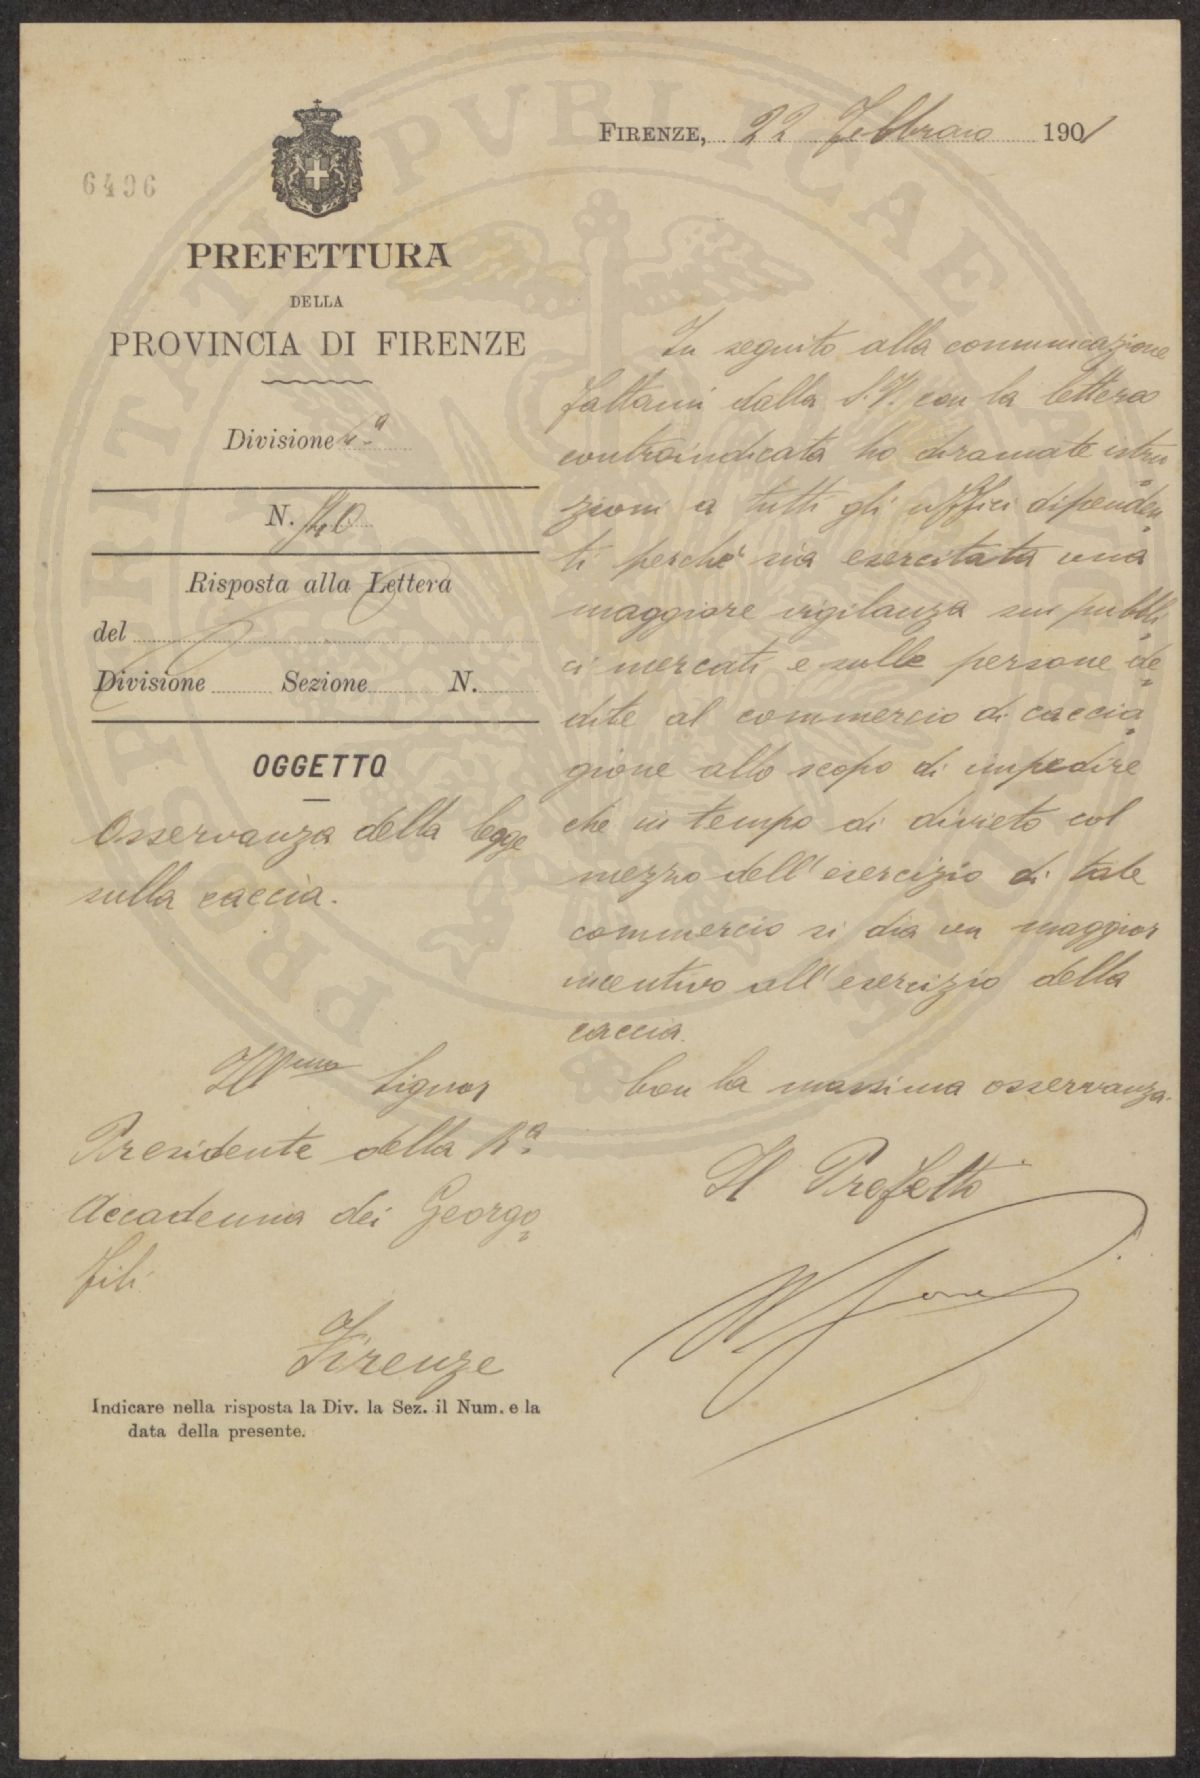 FIRENZE, 22 Febbraio 1901
6496
PREFETTURA
DELLA
PROVINCIA DI FIRENZE
Divisione 4.ª
N. 740
Risposta alla Lettera
del
Divisione Sezione N.
OGGETTO
Osservanza della legge
sulla caccia.
Ill.mo Signor
Presidente della R.ª
Accademia dei Georgo
fili
Firenze
Indicare nella risposta la Div. la Sez. il Num. e la
data della presente.
In seguito alla comunicazione
fattami dalla S.V. con la lettera
controindicata ho diramate istru
zioni a tutti gli uffici dipenden
ti perchè sia esercitata una
maggiore vigilanza sui pubbli
ci mercati e sulle persone de
dite al commercio di caccia
gione allo scopo di impedire
che in tempo di divieto col
mezzo dell'esercizio di tale
commercio si dia un maggior
incentivo all'esercizio della
caccia.
Con la massima osservanza.
Il Prefetto